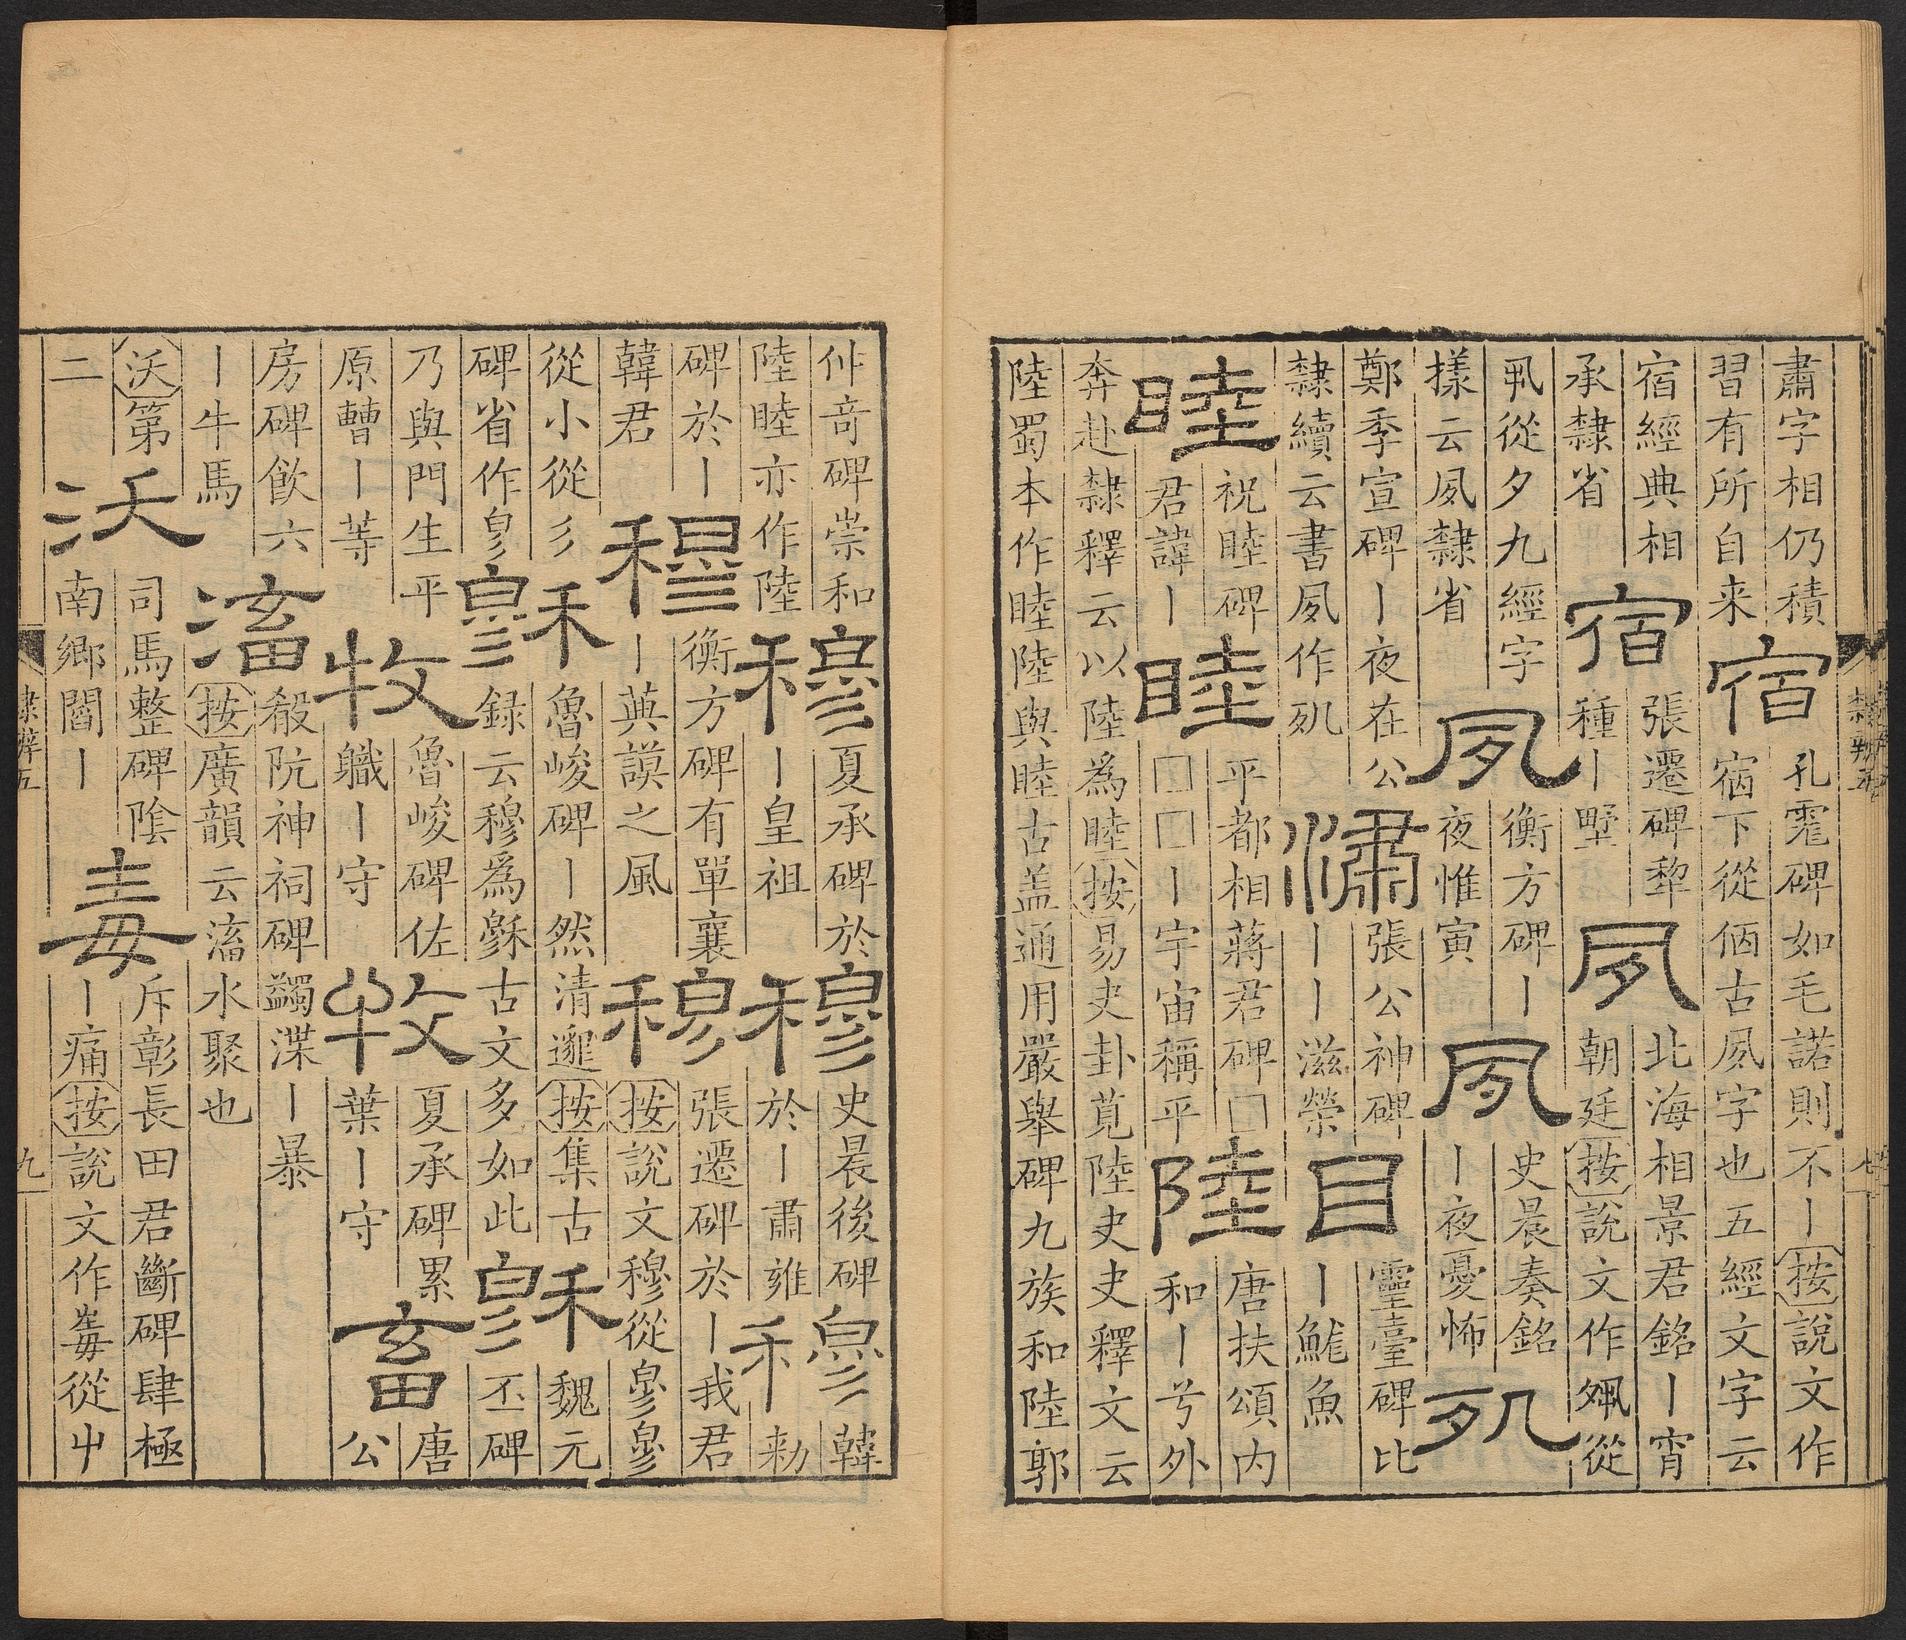 肅字相仍積
習有所自来
宿
孔霔碑如毛諾則不丨按說文作
宿下從㐁古夙字也五經文字云
宿經典相
承隸省
宿
張遷碑犂
種丨墅
夙
北海相景君銘丨宵
朝廷按說文作𡖊從
丮從夕九經字
樣云夙隸省
夙
衡方碑丨
夜惟寅
夙
史晨奏銘
丨夜憂怖
夙
鄭季宣碑丨夜在公
隸續云書夙作夙
潚
張公神碑
丨丨滋榮
目
靈臺碑比
丨鮠魚
睦
祝睦碑
君諱丨
睦
平都相蔣君碑□
□□丨宇宙稱平
陸
唐扶頌内
和丨兮外
奔赴隸釋云以陸為睦按易夬卦莧陸夬夬釋文云
陸蜀本作睦陸與睦古盖通用嚴舉碑九族和陸郭
仲竒碑崇和
陸睦亦作陸
穆
夏承碑於
丨皇祖
穆
史晨後碑
於丨肅雍
穆
韓
勑
碑於丨
韓君
穆
衡方碑有單襄
丨英謨之風
穆
張遷碑於丨我君
按說文穆從㣎㣎
從小從彡
碑省作㣎
穆
魯峻碑丨然清邈按集古
録云穆為穌古文多如此
穆
魏元
丕碑
乃與門生平
原曹丨等
牧
魯峻碑佐
職丨守
牧
夏承碑累
葉丨守
畜
唐
公
房碑飲六
丨牛馬
滀
殽阮神祠碑蠲渫丨暴
按廣韻云滀水聚也
沃第
二
沃
司馬整碑陰
南鄉閻丨
毒
斥彰長田君斷碑肆極
丨痛按說文作毒從屮
隸辨五
九